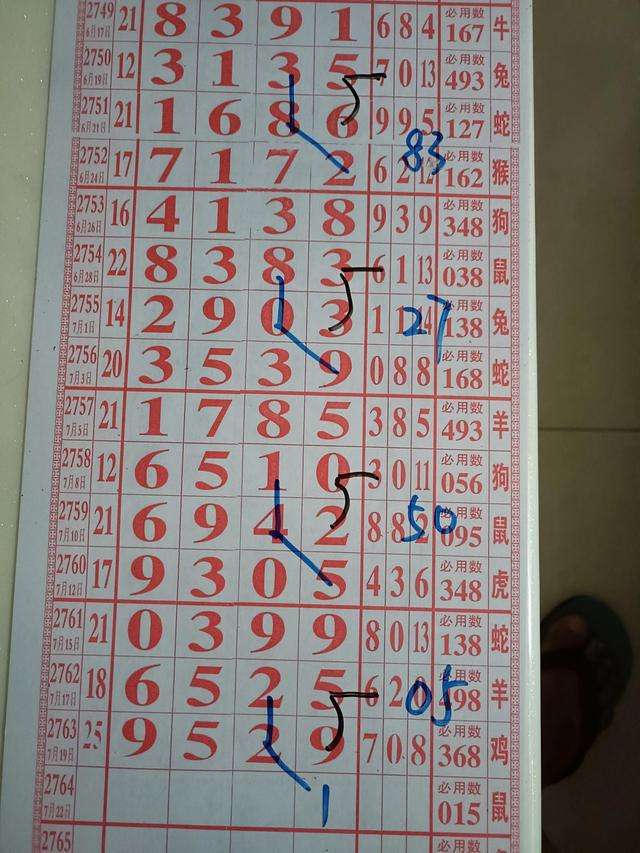 2749 6月17日 21 8 3 9 1 6 8 4 必用数 167 牛
2750 6月19日 12 3 1 3 5 7 0 13 必用数 493 兔
5
2751 6月21日 21 1 6 8 6 9 9 5 必用数 127 蛇
83
2752 6月24日 17 7 1 7 2 6 2 12 必用数 162 猴
2753 6月26日 16 4 1 3 8 9 3 9 必用数 348 狗
2754 6月28日 22 8 3 8 3 6 1 13 必用数 038 鼠
5
2755 7月1日 14 2 9 0 3 1 1 14 必用数 138 兔
27
2756 7月3日 20 3 5 3 9 0 8 8 必用数 168 蛇
2757 7月5日 21 1 7 8 5 3 8 5 必用数 493 羊
2758 7月8日 12 6 5 1 0 3 0 11 必用数 056 狗
5
2759 7月10日 21 6 9 4 2 8 8 2 必用数 095 鼠
50
2760 7月12日 17 9 3 0 5 4 3 6 必用数 348 虎
2761 7月15日 21 0 3 9 9 8 0 13 必用数 138 蛇
2762 7月17日 18 6 5 2 5 6 2 必用数 498 羊
5
05
2763 7月19日 25 9 5 2 9 7 0 8 必用数 368 鸡
2764 7月22日 必用数 015 鼠
1
2765 必用数